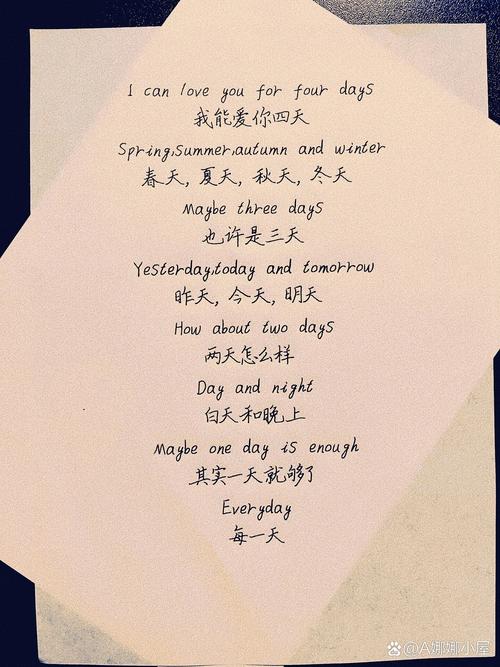 I can love you for four days
我能爱你四天
Spring,Summer,autumn and winter
春天, 夏天, 秋天, 冬天
Maybe three days
也许是三天
Yesterday,today and tomorrow
昨天, 今天, 明天
How about two days
两天怎么样
Day and night
白天和晚上
Maybe one day is enough
其实一天就够了
Everyday
每一天
@A娜娜小屋